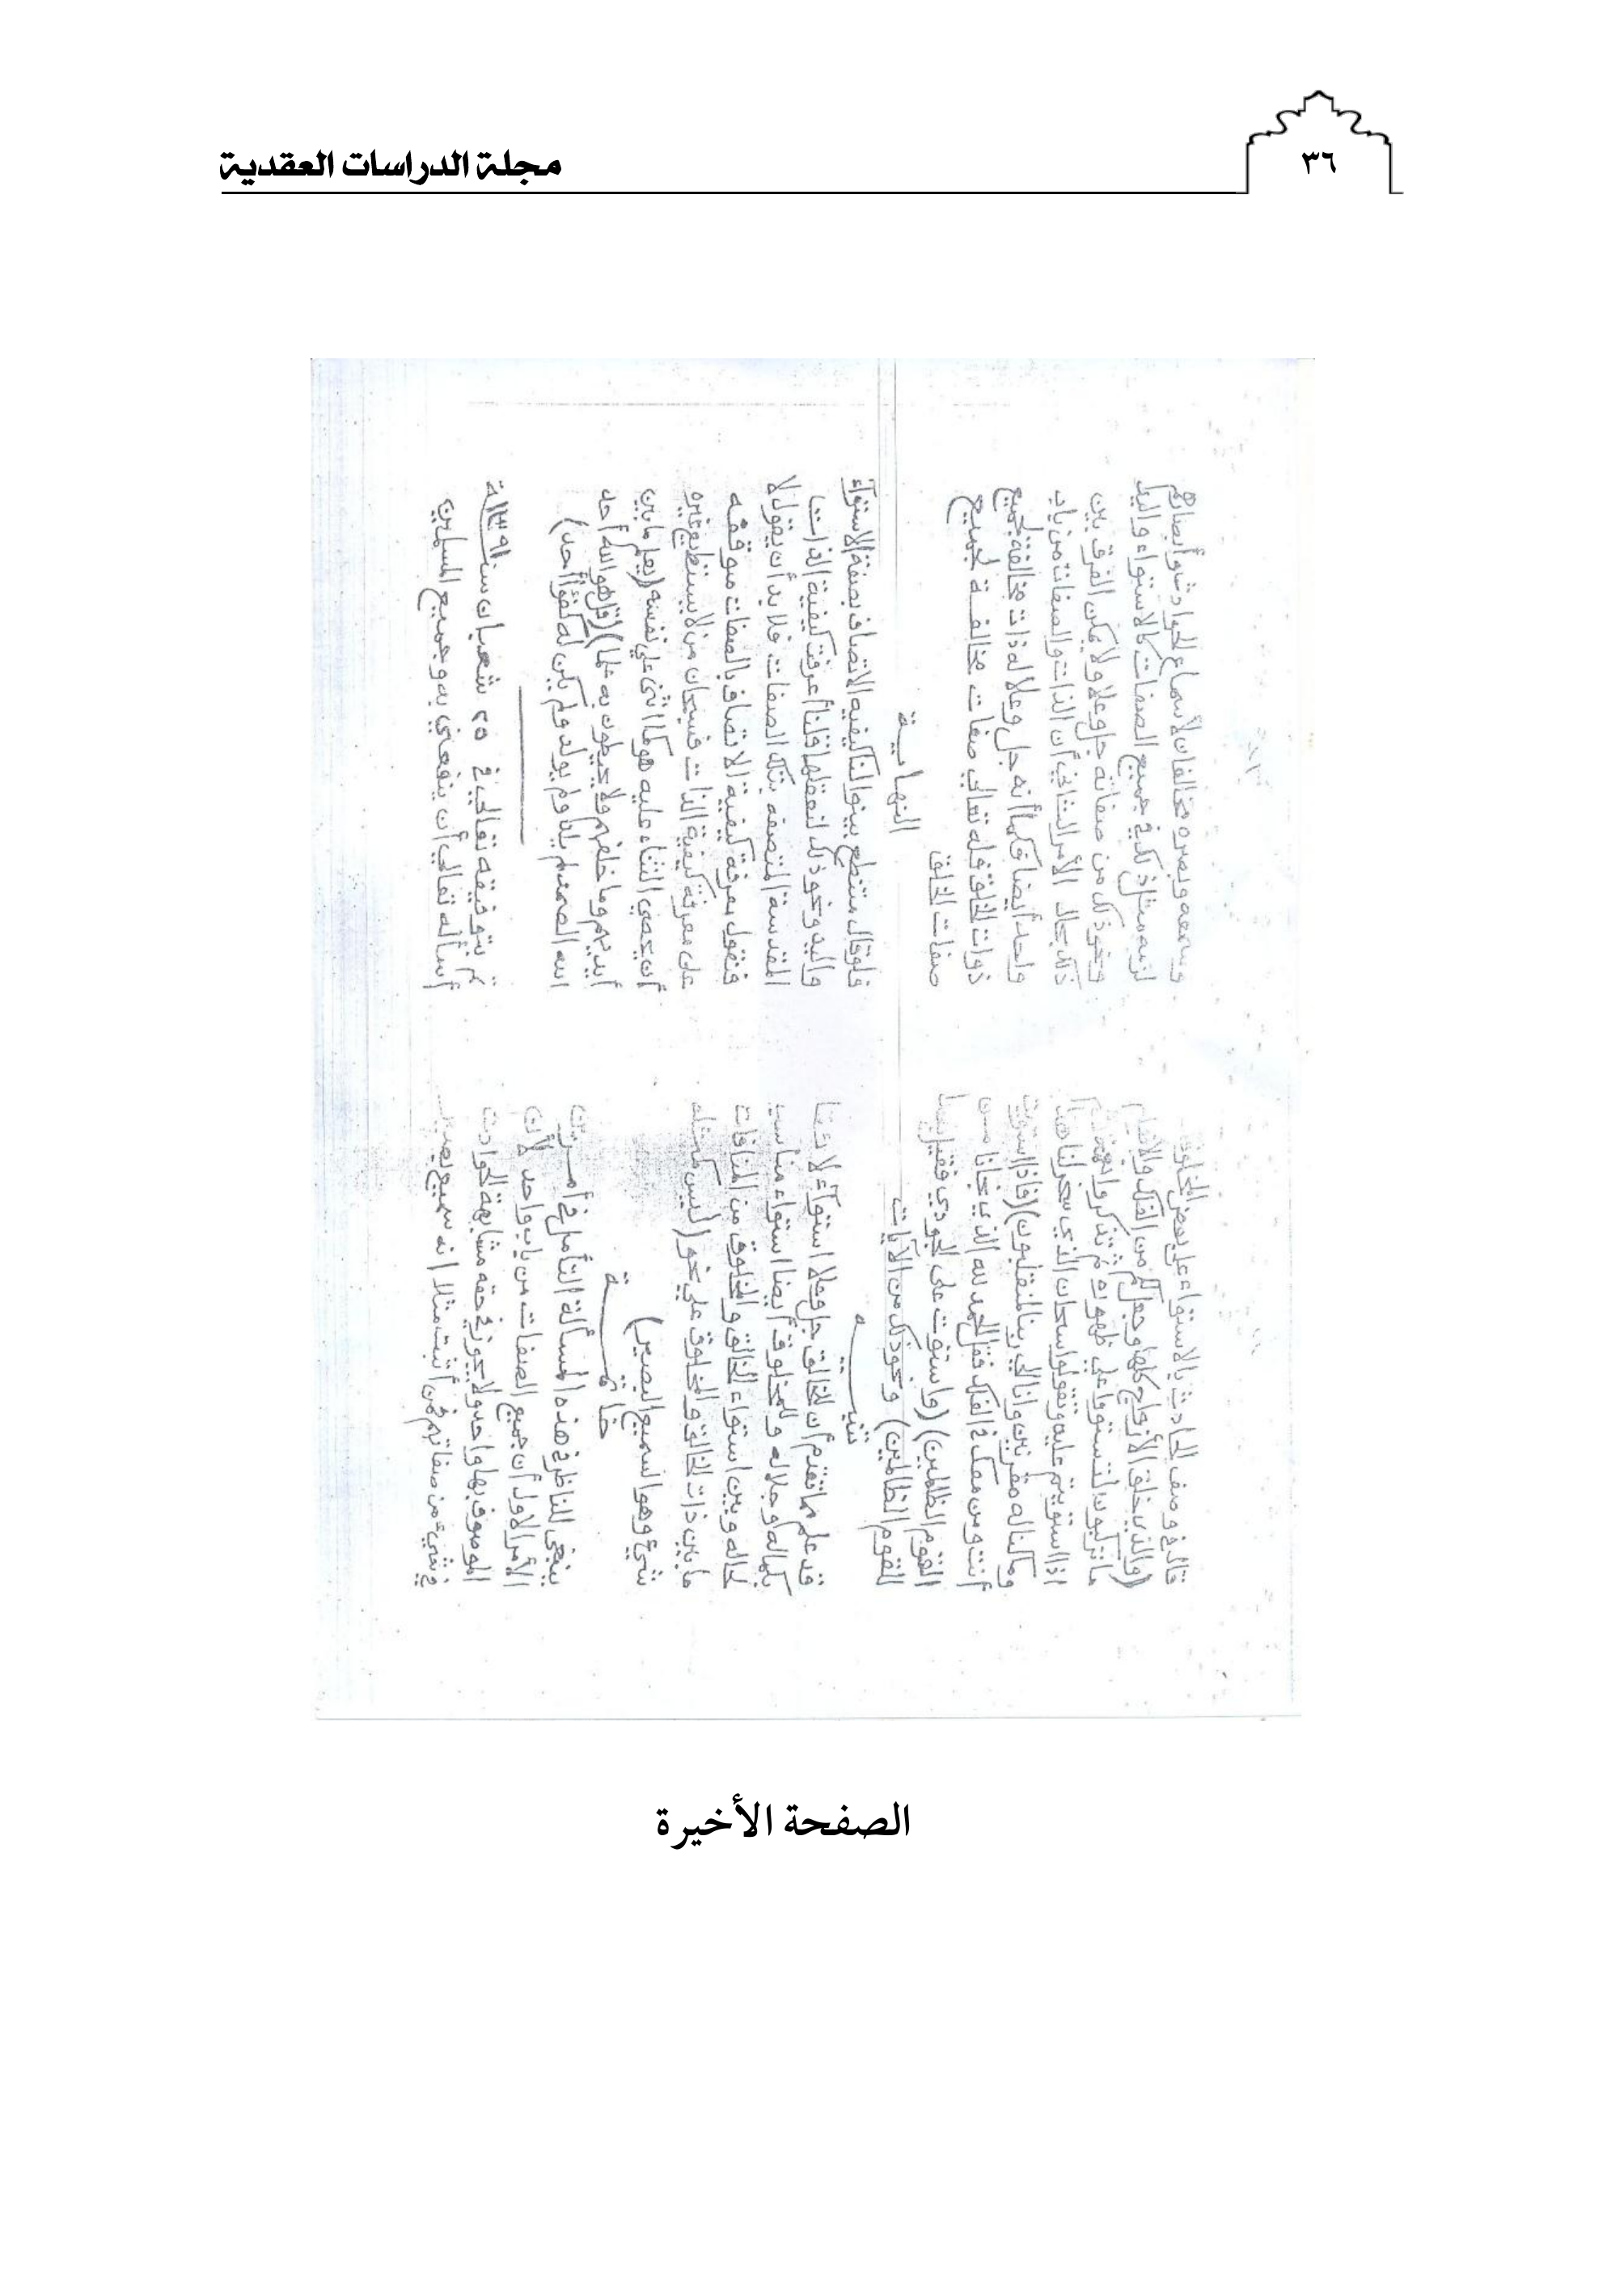 ٣٦
مجلة الدراسات العقدية
قال في وصف الحادث بالاستواء على بعض المخلوقات
(والذي خلق الأزواج كلها وجعل لكم من الفلك والأنعام
ما تركبون لتستووا على ظهوره ثم تذكروا نعمة
اذا استويتم عليه وتقولوا سبحان الذي سخر لنا هذا
وما كنا له مقرنين وانا إلى ربنا لمنقلبون) (فإذا استويت
أنت ومن معك في الفلك فقل الحمد لله الذي نجانا من
القوم الظالمين) (واستوت على الجودي فقيل بعدا
للقوم الظالمين) ونحو ذلك من الآيات
تنبيه
قد علم مما تقدم أن للخالق جل وعلا استواء لائقا
بكماله وجلاله وللمخلوق أيضا استواء مناسب
لحاله وبين استواء الخالق والمخلوق من المنافات
ما بين ذات الخالق والمخلوق على نحو (ليس كمثله
شيء وهو السميع البصير)
خاتمة
ينبغي للناظر في هذه المسألة التأمل في أمرين
الأمر الاول أن جميع الصفات من باب واحد لأن
الموصوف بها واحد ولا يجوز في حقه مشابهة الحوادث
في شيء من صفاتهم فمن أثبت مثلا انه سميع بصير
وسمعه وبصره مخالفان لأسماع الحوادث وأبصارهم
لزمه مثل ذلك في جميع الصفات كالاستواء واليد
ونحو ذلك من صفاته جل وعلا ولا يمكن الفرق بين
ذلك بحال الأمر الثاني أن الذات والصفات من باب
واحد أيضا فكما أنه جل وعلا له ذات مخالفة لجميع
ذوات الخلق فله تعالى صفات مخالفة لجميع
صفات الخلق
النهاية
فلو قال متنطع بينوا لنا كيفية الاتصاف بصفة الاستواء
واليد ونحو ذلك لنعقلها قلنا أعرفت كيفية الذات
المقدسة المتصفه بتلك الصفات فلا بد أن يقول لا
فنقول معرفة كيفية الاتصاف بالصفات موقفه
على معرفة كيفية الذات فسبحان من لا يستطيع غيره
أن يحصي الثناء عليه هو كما اثنى على نفسه (يعلم ما بين
أيديهم وما خلفهم ولا يحيطون به علما) (قل هو الله أحد
الله الصمد لم يلد ولم يولد ولم يكن له كفؤا أحد)
تم بتوفيقه تعالى في ٢٥ شعبان سنة ١٣٩١
أسأله تعالى أن ينفعني به وجميع المسلمين
الصفحة الأخيرة